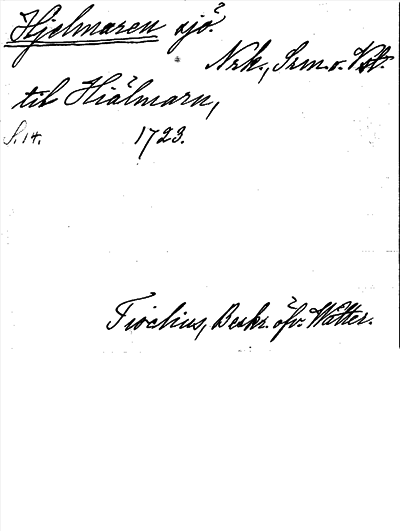 Hjelmaren sjö.
Nrk., Srm. o. Vstl.
til Hiälmarn,
S. 14. 1723.
Tiselius, Beskr. öfv. Wätter.